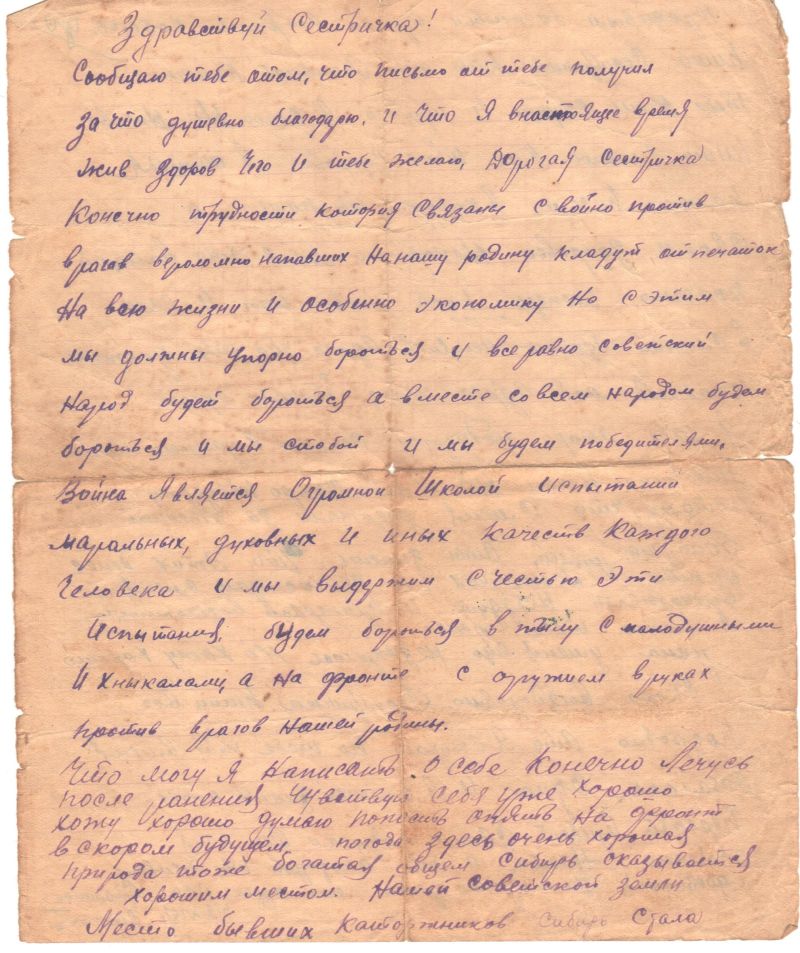 Здравствуй Сестричка!
Сообщаю тебе отом, что письмо от тебе получил
За что душевно благодарю. и что Я внастоящее время
жив здоров чего и тебе желаю, Дорогая Сестричка
Конечно трудности котория связаны с войно против
врагов вероломно напавших На нашу родину кладут отпечаток
На всю жизни и особенно экономику Но с этим
мы должны упорно бороться и все равно советский
Народ будет бороться а вместе со всем народом будем
бороться и мы стобой и мы будем победителями.
Война Является Огромной Школой испытании
маральных, духовных и иных качеств каждого
Человека и мы выдержим с честью эти
Испытания, будем бороться в тылу с малодушными
и хныкалами, а на фронте с оружием вруках
против врагов Нашей родины.
Что могу Я Написать о себе Конечно Лечусь
после ранения чувствую себя уже хорошо
хожу хорошо думаю попасть опять на фронт
в скором будущем погода здесь очень хорошая
природа тоже богатая общем Сибирь оказывается
хорошим местом. Нашей Советской земли
Место бывших Каторжников Сибирь Стала